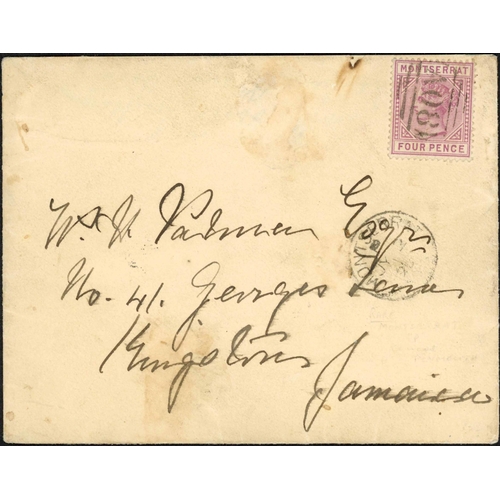 MONTSERRAT
FOUR PENCE
W. H. Palmer Esqre
No. 41. Georges Lane
Kingston
Jamaica